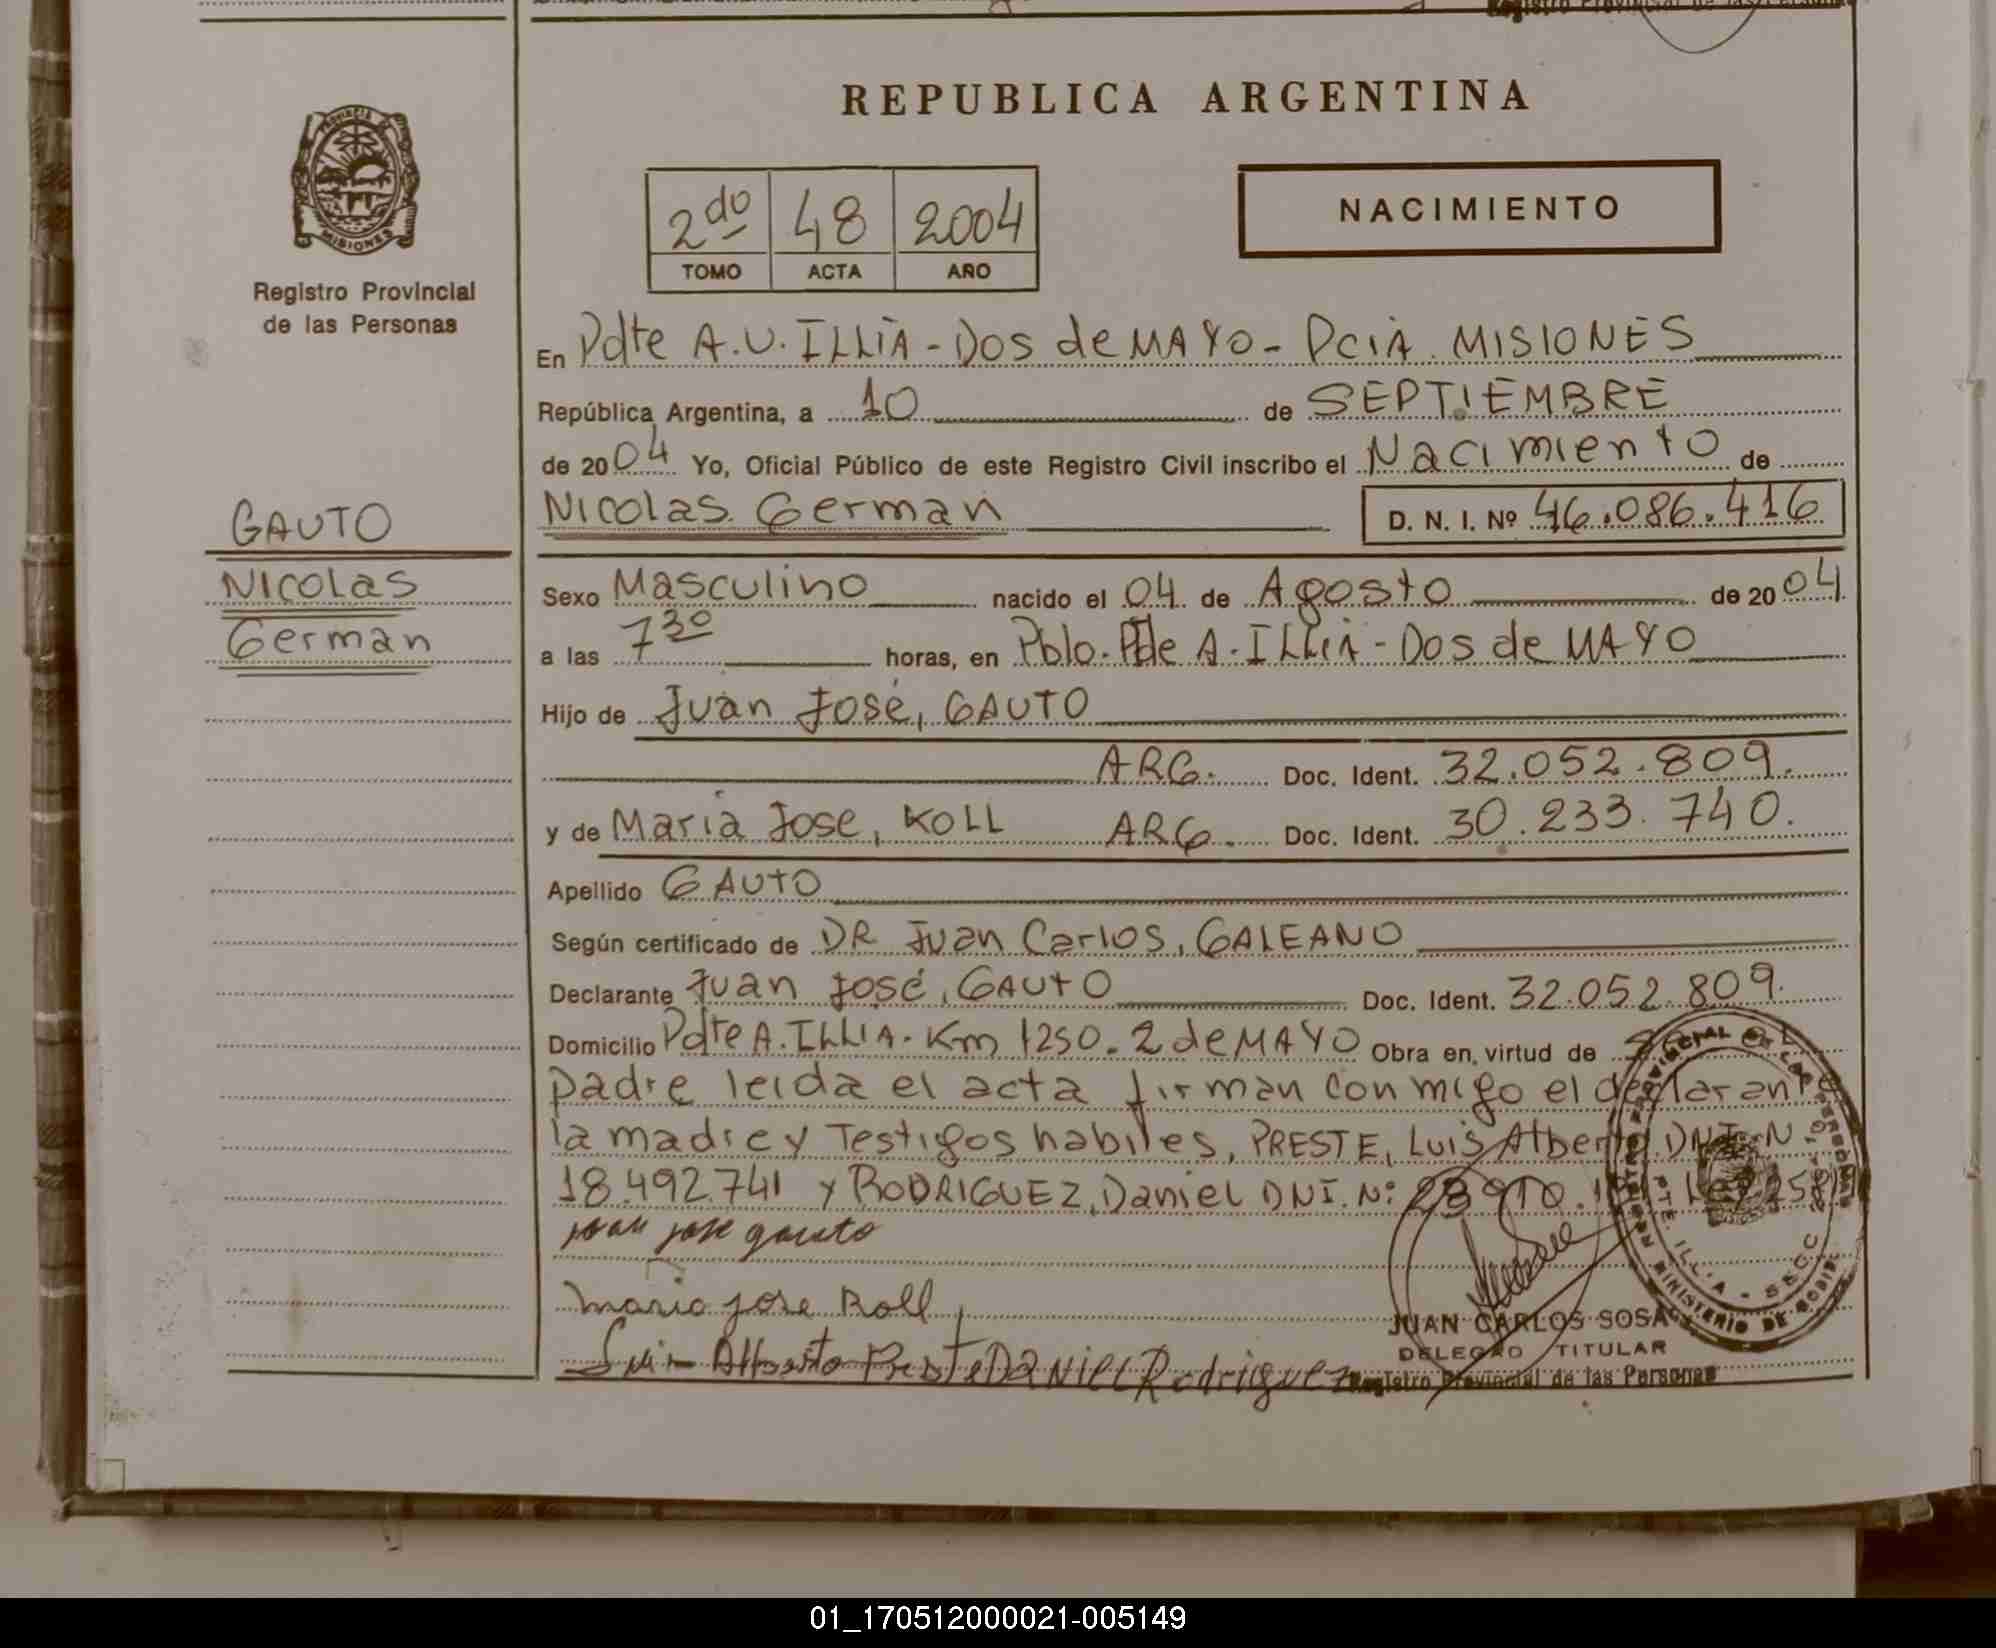 REPUBLICA ARGENTINA
PROVINCIA DE
MISIONES
Registro Provincial
de las Personas
2do 48 2004
TOMO ACTA AÑO
NACIMIENTO
En Pdte A.U. ILLIA - Dos de MAYO - Pcia. MISIONES
República Argentina, a 10 de SEPTIEMBRE
de 2004 Yo, Oficial Público de este Registro Civil inscribo el Nacimiento de
Nicolas German D. N. I. Nº 46.086.416
GAUTO
Nicolas
German
Sexo Masculino nacido el 04 de Agosto de 2004
a las 7 30 horas, en Pblo. Pde A. ILLIA - Dos de MAYO
Hijo de Juan José, GAUTO
ARG. Doc. Ident. 32.052.809.
y de Maria Jose, KOLL ARG. Doc. Ident. 30.233.740.
Apellido GAUTO
Según certificado de DR Juan Carlos, GALEANO
Declarante Juan José, GAUTO Doc. Ident. 32.052.809.
Domicilio Pdte A. ILLIA. Km 1250. 2 de MAYO Obra en virtud de
padre leida el acta firman conmigo el declarante
la madre y Testigos habiles, PRESTE, Luis Alberto. DNI. N
18.492.741 y RODRIGUEZ, Daniel DNI. Nº 28.910.
juan jose gauto
maria jose koll
Luis Alberto Preste Daniel Rodriguez
JUAN CARLOS SOSA
DELEGADO TITULAR
Registro Provincial de las Personas
01_170512000021-005149